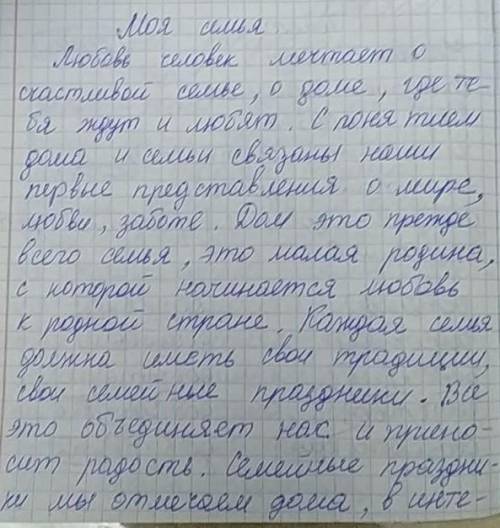 Моя семья
Любовь человек мечтает о
счастливой семье, о доме, где те
бя ждут и любят. С понятием
дома и семьи связаны наши
первые представления о мире,
любви, заботе. Дом это прежде
всего семья, это малая родина,
с которой начинается любовь
к родной стране. Каждая семья
должна иметь свои традиции,
свои семейные праздники. Всё
это объединяет нас и прино-
сит радость. Семейные праздни-
ки мы отмечаем дома, в инте-